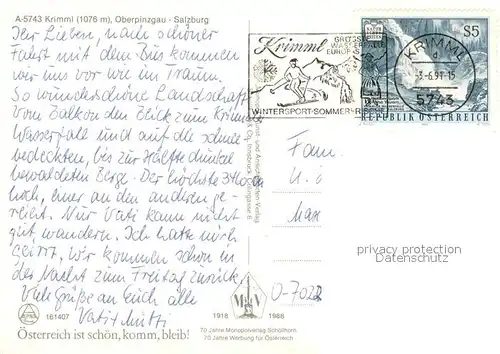 A-5743 Krimml (1076 m), Oberpinzgau - Salzburg
Ihr Lieben, nach schöner
Fahrt mit dem Bus kommen
wir uns vor wie im Traum.
So wunderschöne Landschaft
vom Balkon den Blick zum Krimmler
Wasserfall und auf die schnee
bedeckten, bis zur Hälfte dunkel
bewaldeten Berge. Der höchste 3400m
hoch, einer an den anderen ge-
reiht. Nur Vati kann nicht
gut wandern. Ich hatte mich
geirrt, wir kommen schon in
der Nacht zum Freitag zurück.
Viele Grüße an Euch alle
Vati + Mutti
161407
Österreich ist schön, komm, bleib!
Krimml
GRÖSSTE
WASSERFÄLLE
EUROPAS
WINTERSPORT-SOMMER-
KRIMML
d
-3.-6.91-15
5743
S5
REPUBLIK ÖSTERREICH
Fam.
Max
O-7022
1918
1988
70 Jahre Monopolverlag Schöllhorn
70 Jahre Werbung für Österreich
privacy protection
Datenschutz